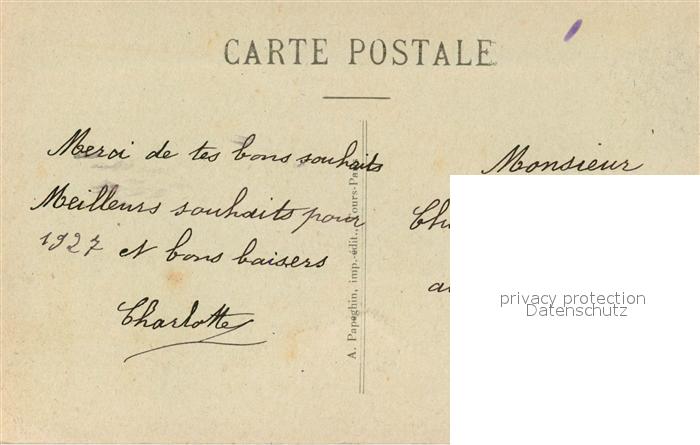 CARTE POSTALE
Merci de tes bons souhaits
Meilleurs souhaits pour
1927 et bons baisers
Charlotte
A. Papeghin, imp.-édit., Tours-Pa
Monsieur
privacy protection
Datenschutz